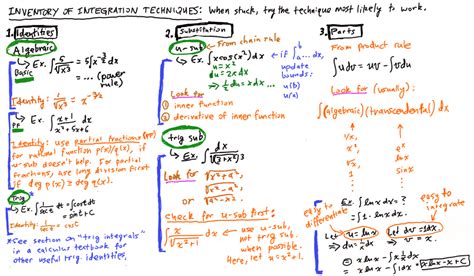 INVENTORY OF INTEGRATION TECHNIQUES: When stuck, try the technique most likely to work.
1. Identities
Algebraic
Ex. ∫ 5/√x³ dx = 5∫x^(-3/2) dx
Basic
= ... (power rule)
Identity: 1/√x³ = x^(-3/2)
PF
Ex. ∫ (x+1)/(x²+5x+6) dx
Identity: use partial fractions (PF)
for rational function p(x)/q(x), if
u-sub doesn't help. For partial
fractions, use long division first
if deg p(x) ≥ deg q(x).
Trig
Ex. ∫ 1/sec t dt = ∫cos t dt
= sin t + C
Identity: 1/sec t = cos t
*See section on "trig integrals"
in a calculus textbook for
other useful trig. identities.
2. Substitution
u-sub
From chain rule
Ex. ∫x cos(x²) dx
u = x²
du = 2x dx
⇒ ½ du = x dx ...
if ∫ₐᵇ ... dx,
update
bounds:
u(b)
u(a)
Look for
1) inner function
2) derivative of inner function
trig sub
Ex. ∫ dx/
Look for
√x²+a²,
√x²-a²,
or √a²-x²
check for u-sub first:
∫ x/√x²+1 dx
use u-sub,
not trig sub
when possible.
Here, let u = x²+1
3. Parts
From product rule
∫u dv = uv - ∫v du
Look for (usually):
∫(algebraic)(transcendental) dx
√x,
x,
x²,
1,
⋮
sin x
eˣ
ln x
⋮
Ex. ∫ln x dx = ?
= ∫1·ln x dx
easy to
differentiate
easy to
integrate
Let u = ln x
Let dv = 1 dx
⇒ du = 1/x dx
⇒ v = x.
= x ln x - ∫x·1/x dx
= x ln x - ∫1 dx = x ln x - x + C